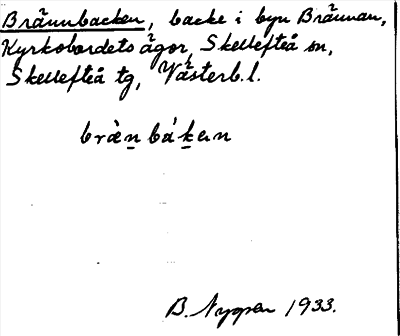 Brännbacken, backe i byn Brännan,
Kyrkobordets ägor, Skellefteå sn,
Skellefteå tg, Västerb. l.
brànbákɐn
B. Nygren 1933.